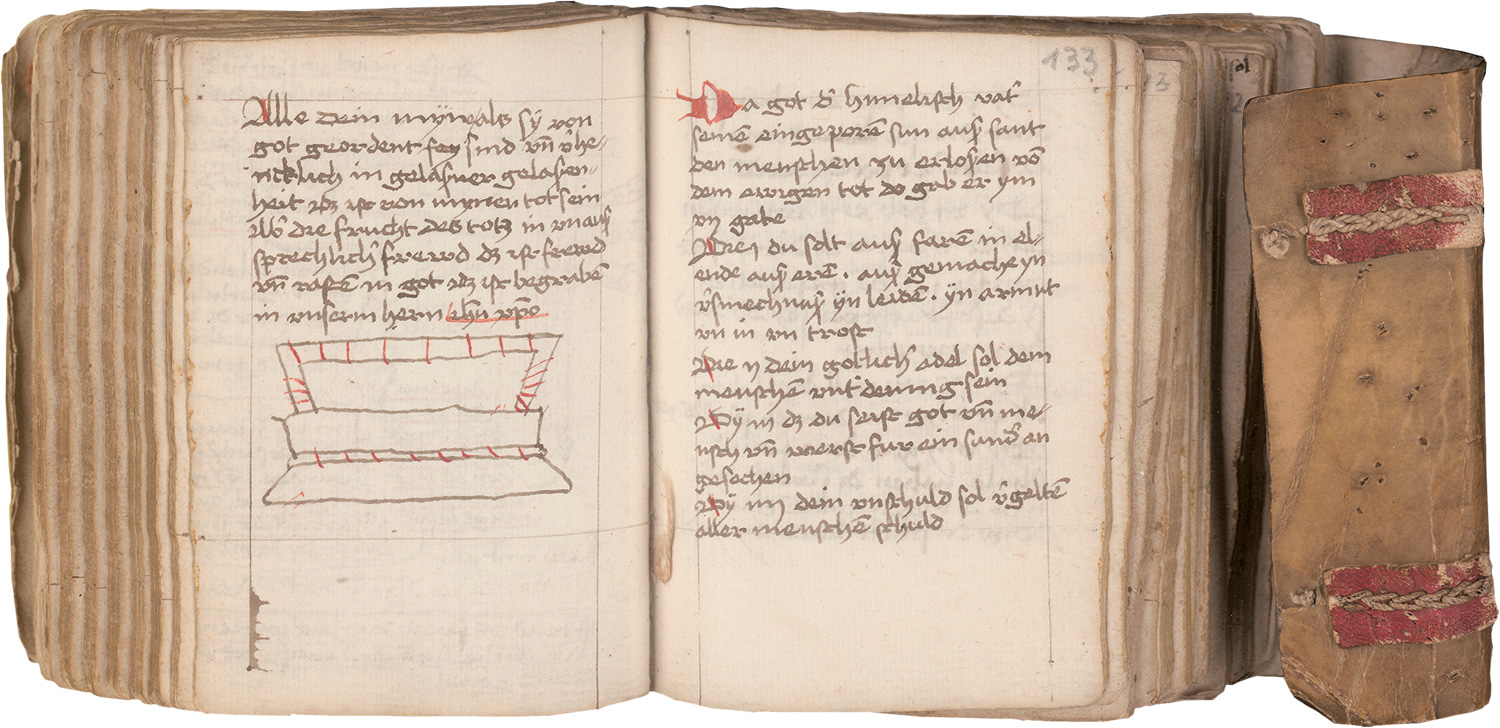 Alle dein mÿwals sÿ von
got geordent sey sind vn̄ v̓he-
ricklich in gelasner gelasen-
heit dz ist von innen tot sein
die frucht des totz in vnauß
sprechlich̓ frewd dz ist frewd
vn̄ rasten̄ in got dz ist begraben̄
in vnserm hern ihū xp̄o
133
Da got d̓ himelisch vat̓
seinē eingeporē sun auß sant
den menschen zu erlosen vō
dem ewigen tot do gab er ym
vij gabe
Die j du solt auß farē in el-
ende auß erē . auß gemache yn
v̓smechnuß ÿn leidē . ÿn armut
vn in vn trost
Die ij dein gotlich adel sol dem
menschē sein
Dÿ iij dz du seist got vn̄ me-
nsch vn̄ werst fur ein sund̓ an
gesechen
Dÿ iiij dein vnschuld sol v̓geltē
aller menschē schuld